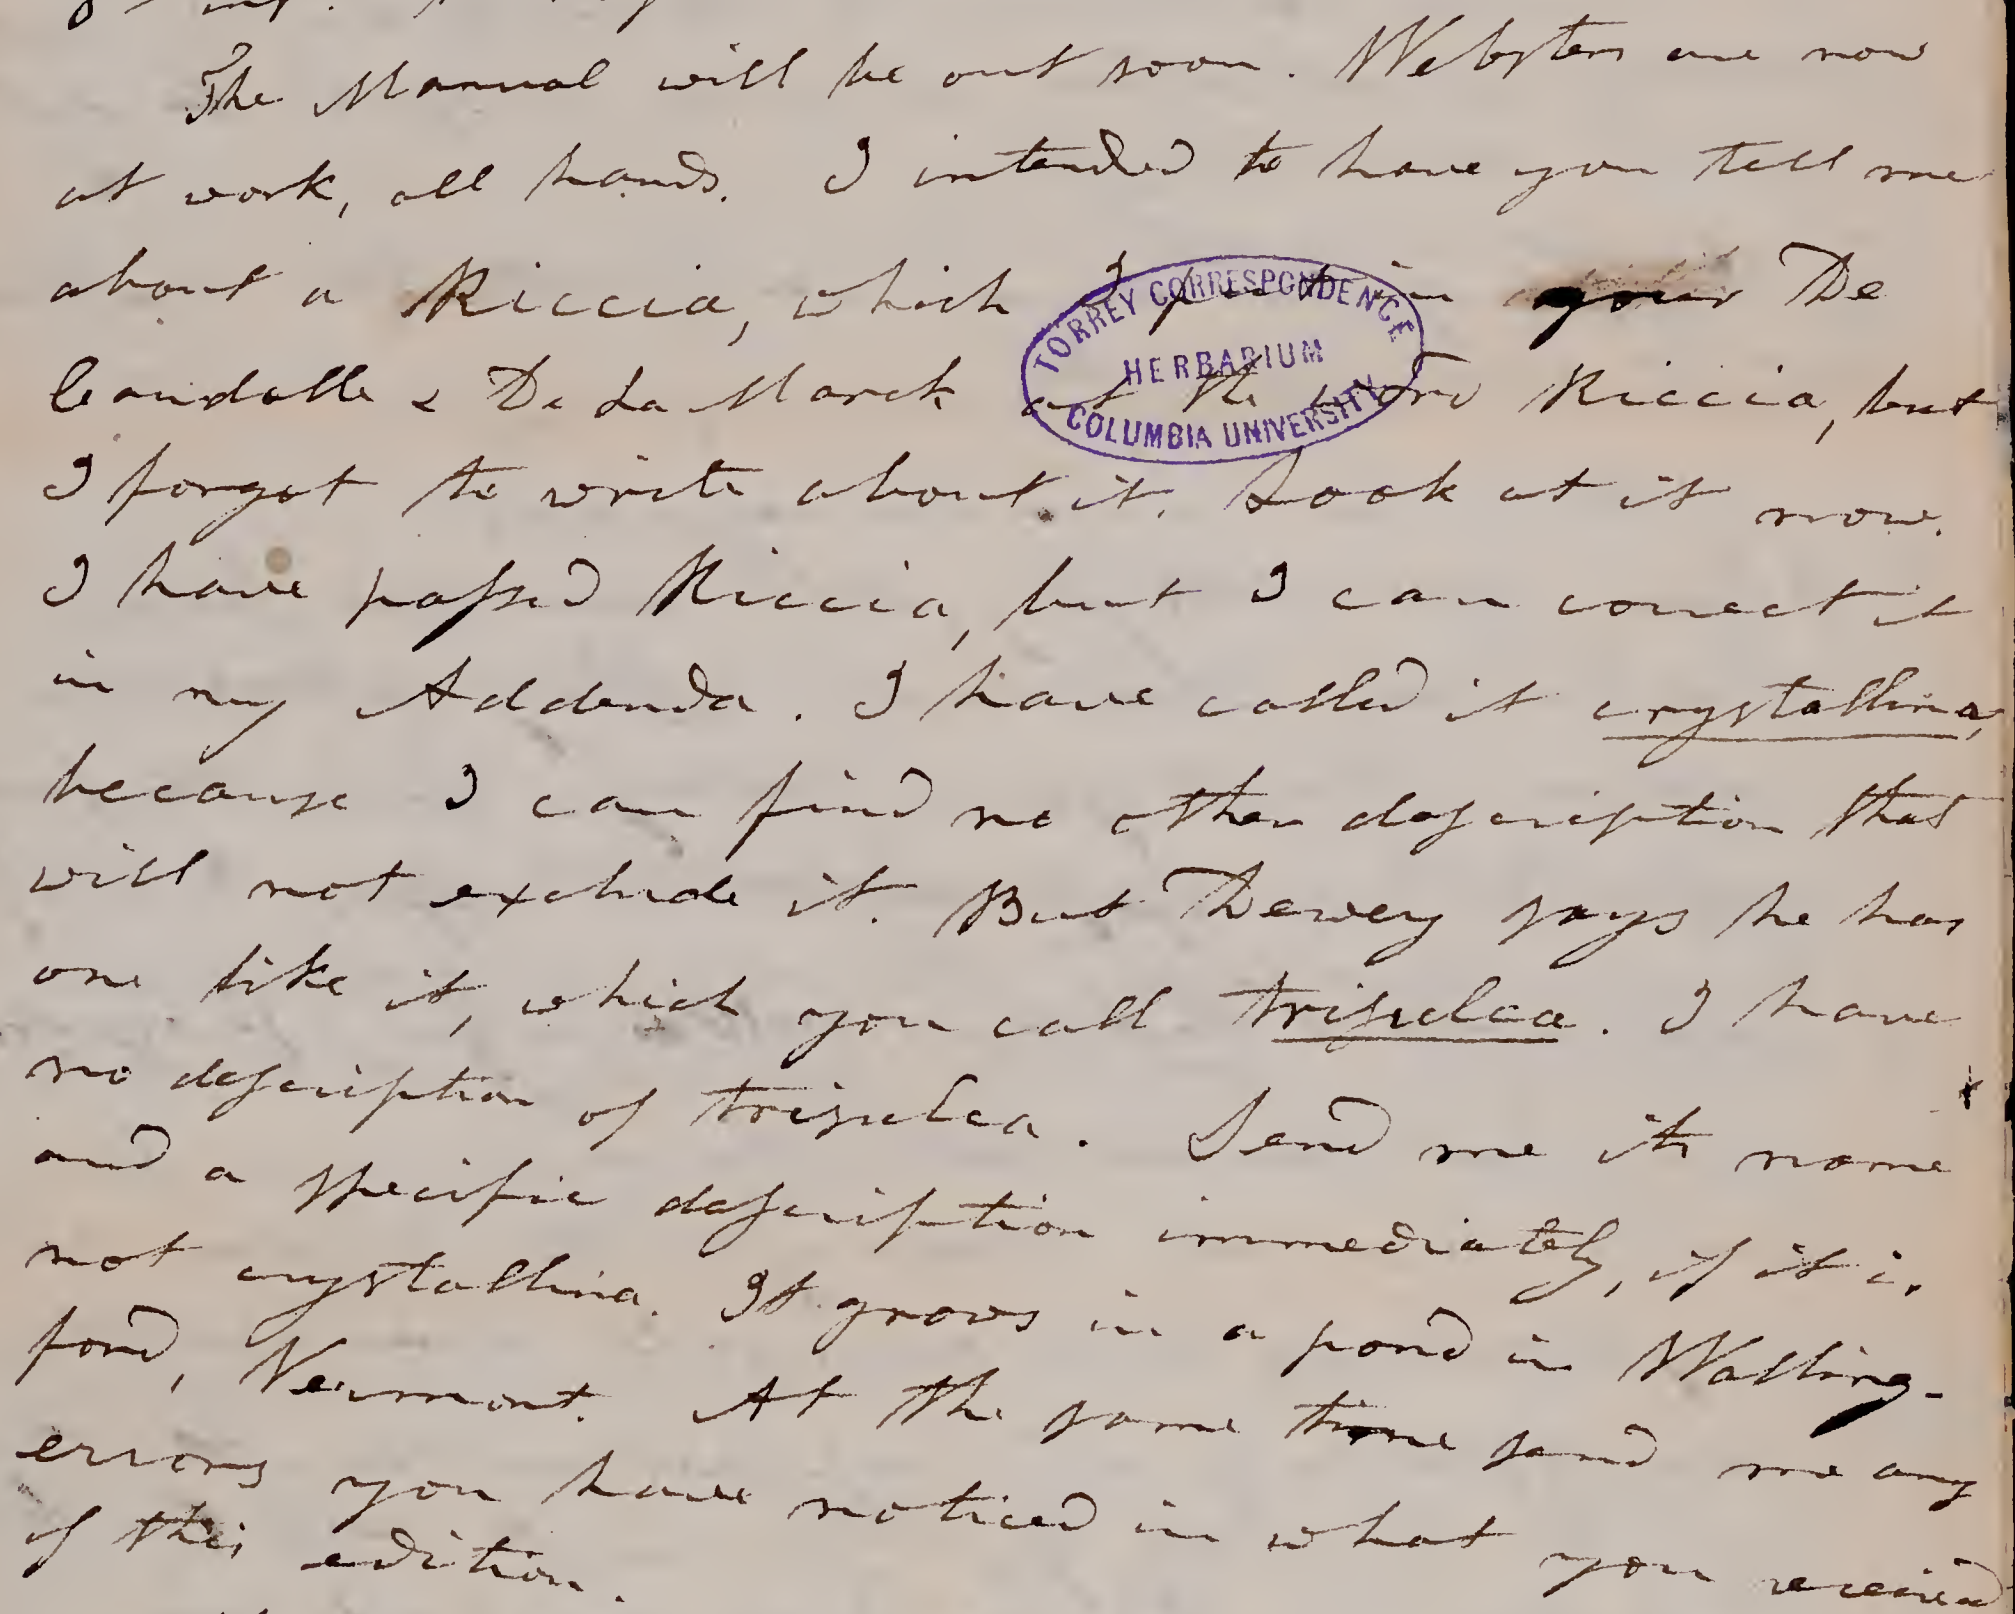 The Manual will be out soon. Websters are now
at work, all hands. I intended to have you tell me
about a Riccia, which I put in your De
Candolle & De La Marck at the word Riccia, but
I forgot to write about it. Look at it now.
I have passed Riccia, but I can correct it
in my Addenda. I have called it crystallina,
because I can find no other description that
will not exclude it. But Dewey says he has
one like it, which you call trisulca. I have
no description of trisulca. Send me its name
and a specific description immediately, if it is
not crystallina. It grows in a pond in Walling-
ford, Vermont. At the same time send me any
errors you have noticed in what you received
of this edition.
TORREY CORRESPONDENCE
HERBARIUM
COLUMBIA UNIVERSITY